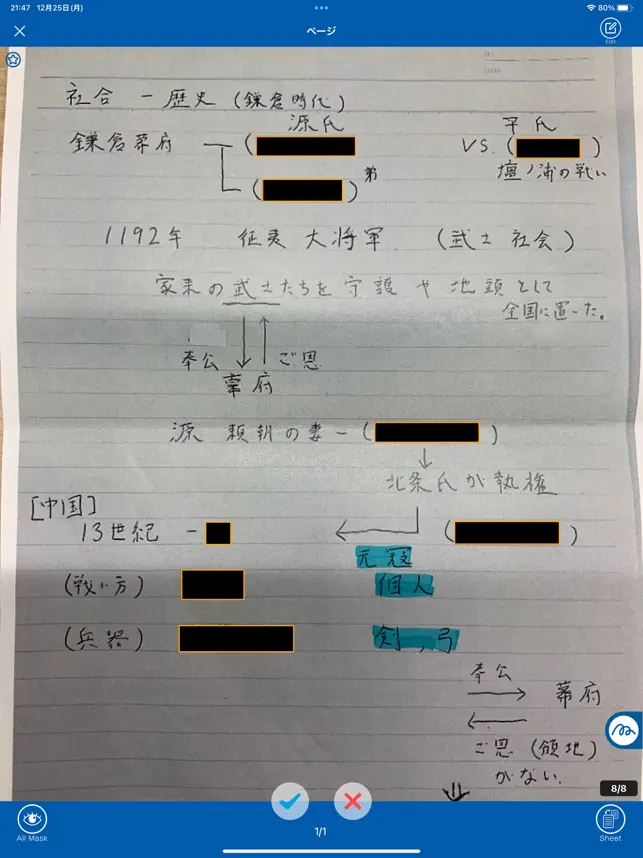 21:47 12月25日(月)
80%
ページ
Edit
Date
社会 － 歴史 (鎌倉時代)
源氏 平氏
鎌倉幕府 ( ) VS. ( )
( ) 弟 壇ノ浦の戦い
1192年 征夷大将軍 (武士社会)
家来の武士たちを守護や地頭として
全国に置いた。
奉公 ご恩
幕府
源頼朝の妻 － ( )
北条氏が執権
[中国]
13世紀 － ( )
元寇
(戦い方) 個人
(兵器) 剣、弓
奉公
幕府
ご恩 (領地)
がない.
8/8
All Mask
1/1
Sheet